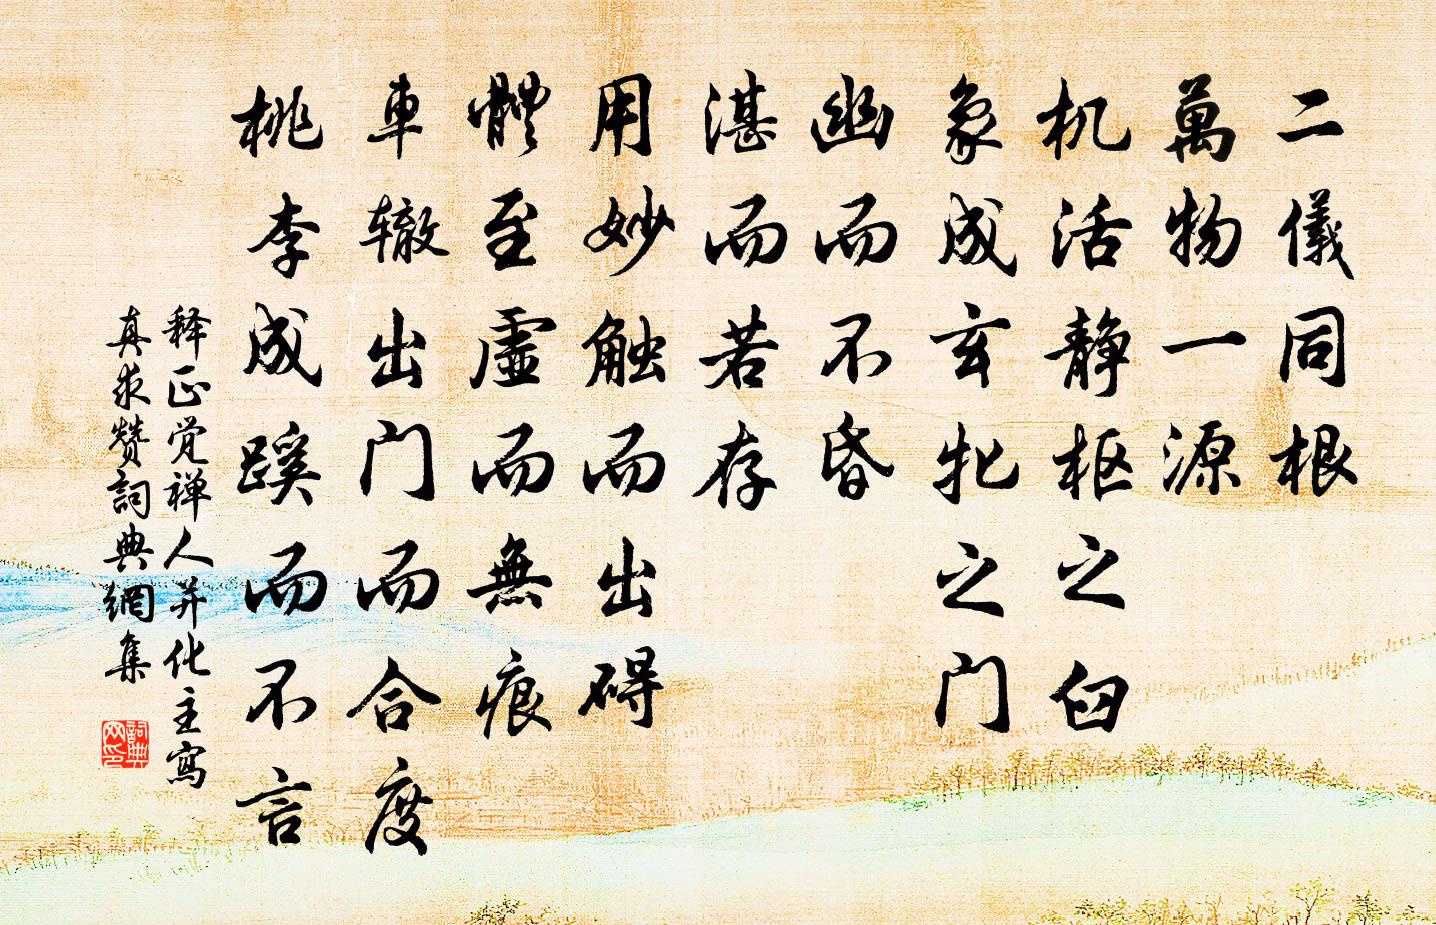 二儀同根
萬物一源
机活静枢之臼
象成玄牝之门
幽而不昏
湛而若存
用妙触而出碍
體至虛而無痕
車辙出门而合度
桃李成蹊而不言
释正觉禅人并化主寫
真求赞詞典網集
詞典
网印